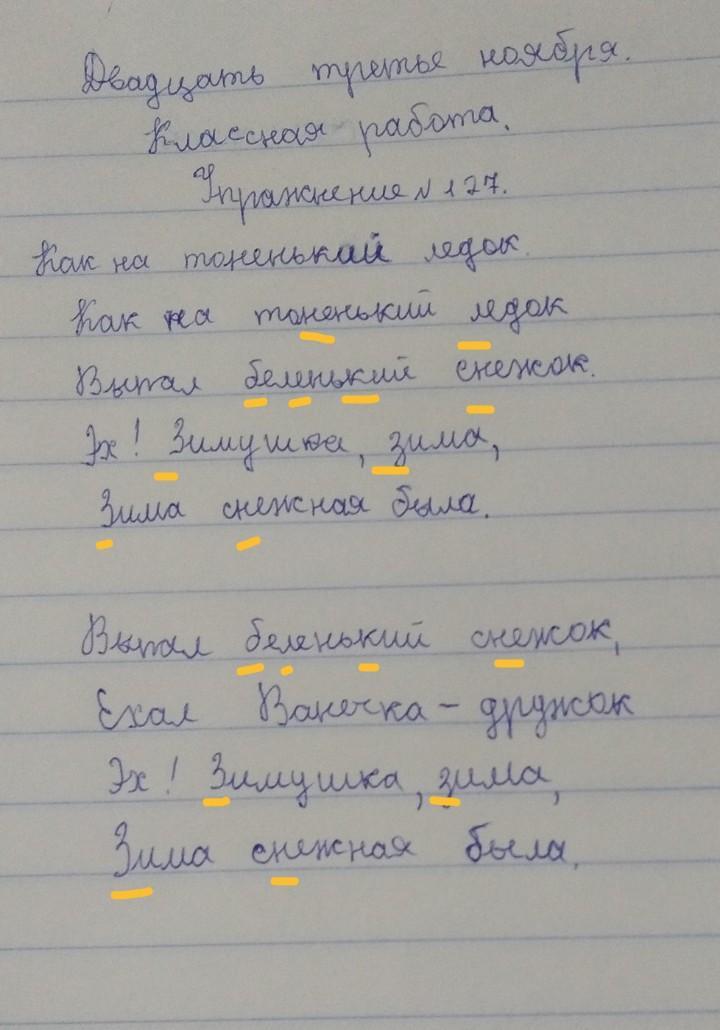 Двадцать третье ноября.
Классная работа.
Упражнение № 127.
Как на тоненький ледок.
Как на тоненький ледок
Выпал беленький снежок.
Эх! Зимушка, зима,
Зима снежная была.
Выпал беленький снежок,
Ехал Ванечка - дружок
Эх! Зимушка, зима,
Зима снежная была.